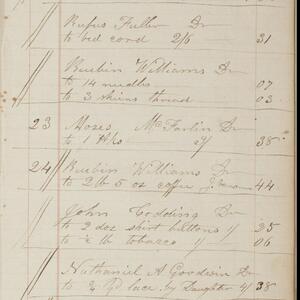 Rufus Fuller Dr
to bed cord 2/6 31
Reubin Williams Dr
to 14 needles 07
to 3 skeins thread 03
23 Moses McFarlin Dr
to 1 38
24 Reubin Williams Dr
to 2 lb 5 oz coffee 44
John Codding Dr
to 2 doz shirt buttons 25
to ½ lb tobacco 06
Nathaniel A Goodwin Dr
to yd lace by Daughter 38